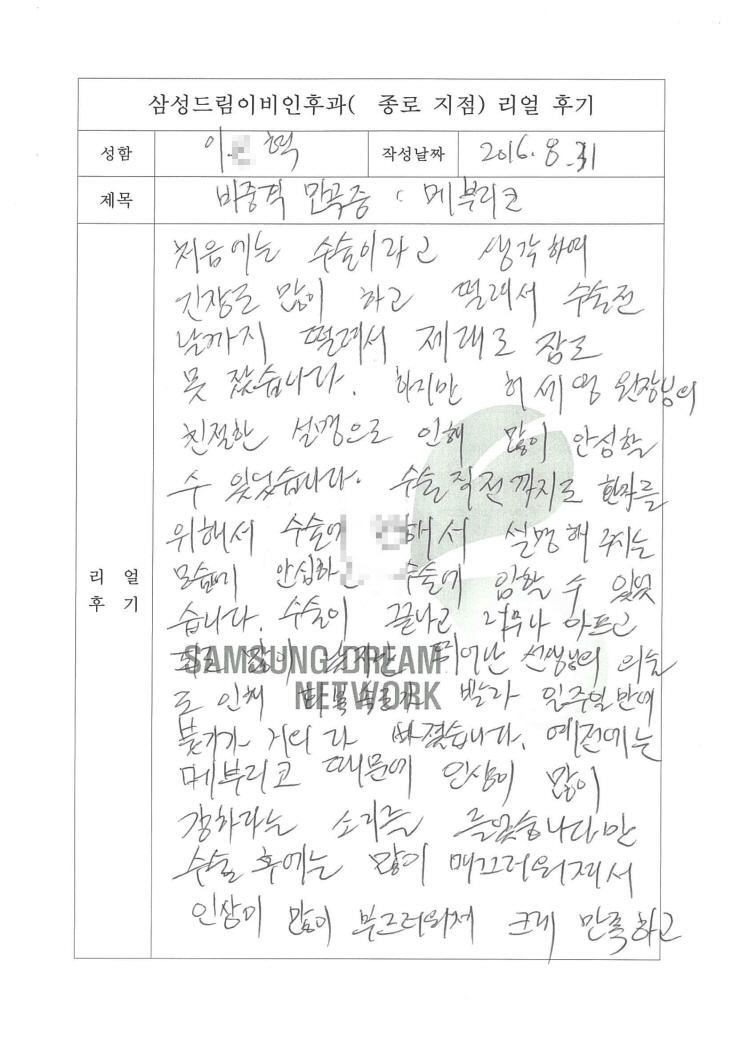 삼성드림이비인후과( 종로 지점) 리얼 후기
성함 이 혁 작성날짜 2016. 8. 31
제목 비중격 만곡증 : 메부리코
리얼 후기
처음에는 수술이라고 생각하여
긴장도 많이 하고 떨려서 수술전
날까지 떨려서 제대로 잠도
못 잤습니다. 하지만 허세영 원장님의
친절한 설명으로 인해 많이 안심할
수 있었습니다. 수술직전까지도 환자를
위해서 수술에 해서 설명해 주시는
모습에 안심하 수술에 임할 수 있었
습니다. 수술이 끝나고 너무나 아프고
많이 뛰어난 선생님의 의술
로 인해 회복속도가 빨라 일주일만에
붓기가 거의 다 빠졌습니다. 예전에는
메부리코 때문에 인상이 많이
강하다는 소리를 들었습니다만
수술 후에는 많이 매끄러워져서
인상이 많이 부드러워져 크게 만족하고
SAMSUNG DREAM
NETWORK